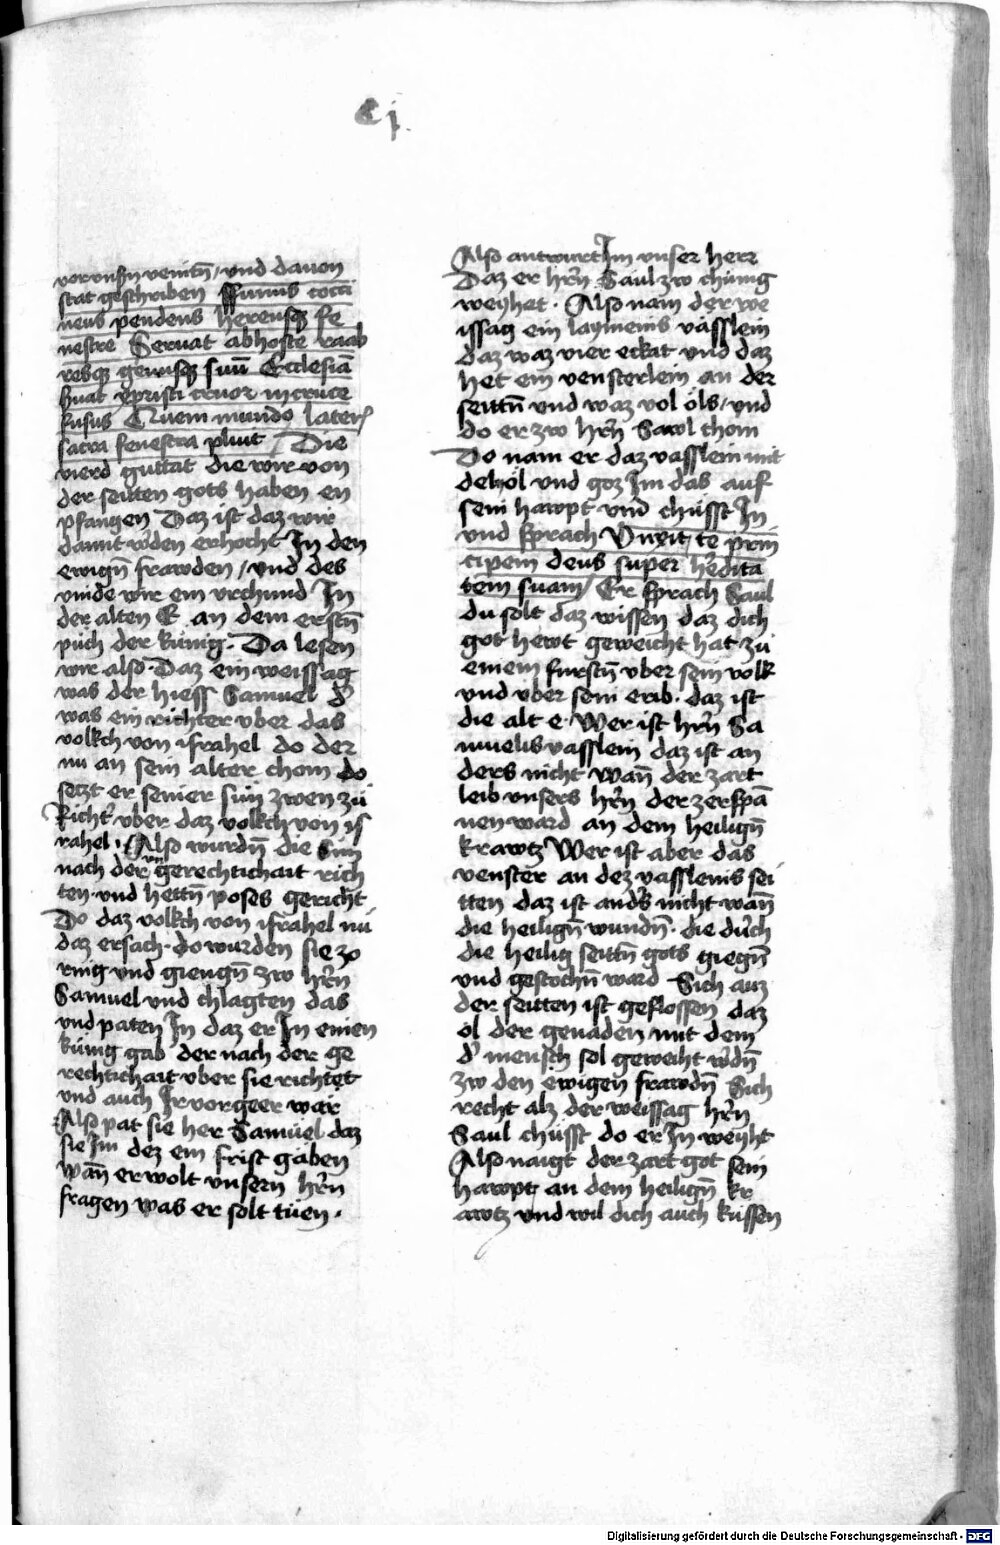 C j.
stat geschriben Funis cocci
neus pendens herensq fe
nestre Seruat abhoste raab
resq genusq suū Ecclesiā
Suat xpristi cruor in cruce
fusus Quem mundo later
sacra fenestra pluit / Die
vierd guttat die wir von
der seitten gots haben en
pfangen Daz ist daz wir
damit wden erhocht In den
ewign̄ frawden / und des
vinde wir ein vrchund In
der alten E an dem erstn̄
půch der künig. Da lesen
wir also. Daz ein weissag
was der hiess Samuel d'
was ein richter vber das
volkch von israhel do der
nu an sein alter chom do
setzt er seiner sün zwen zü
Richt' vber daz volkch von is
rahel. Also wurdn̄ die Sün
nach der vngerechtichait rich
ten. und hettn̄ poses gericht
Do daz volkch von israhel nü
daz ersach. do wurden sie zo
rnig und giengn̄ zw hr̄n
Samuel vnd chlagten das
vnd paten In daz er In einen
künig gab der nach der ge
rechtichait vber sie richtet
und auch Ir vorgeer wär
Also pat sie her Samuel daz
sie Im dez ein frist gaben
Wan̄ er wolt vnsern hr̄n
fragen was er solt tüen.
Also antwurt Im vnser herr
Daz er hr̄n Saul zw chünig
weyhet. Also nam der we
issag ein laymeins vässlein
daz waz vier eckat vnd daz
het ein vensterlein an der
seittn̄ vnd waz vol öls / vnd
do er zw hr̄n Sawl chom
Do nam er daz vässlein mit
dez öl vnd goz Im das auf
sein hawpt vnd chüsst In
vnd sprach Vnxit te prin
cipem deus super hedita
tem suam / Er sprach Saul
du solt daz wissen daz dich
got hewt geweicht hat zü
einem fürstn̄ vber sein volk
vnd vber sein erib. daz ist
die alt e. Wer ist hr̄n Sa
muelis vässlein daz ist an
ders nicht wan̄ der zart
leib vnsers hr̄n der zerspā
nen ward an dem heilign̄
krawtz Wer ist aber das
venster an dez vässleins sei
tten daz ist and's nicht wan̄
die heilign̄ wundn̄. die durch
die heilig seittn̄ gots giegn̄
vnd gestochn̄ ward Sich auz
der seitten ist geflossen daz
öl der genaden mit dem
d' mensch sol geweiht w'dn̄
zw den ewigen frawdn̄ Sich
recht alz der weissag hr̄n
Saul chüsst do er In weyht
Also naigt der zart got sein
hawpt an dem heilign̄ kr
awtz vnd wil dich auch küssen
Digitalisierung gefördert durch die Deutsche Forschungsgemeinschaft - DFG